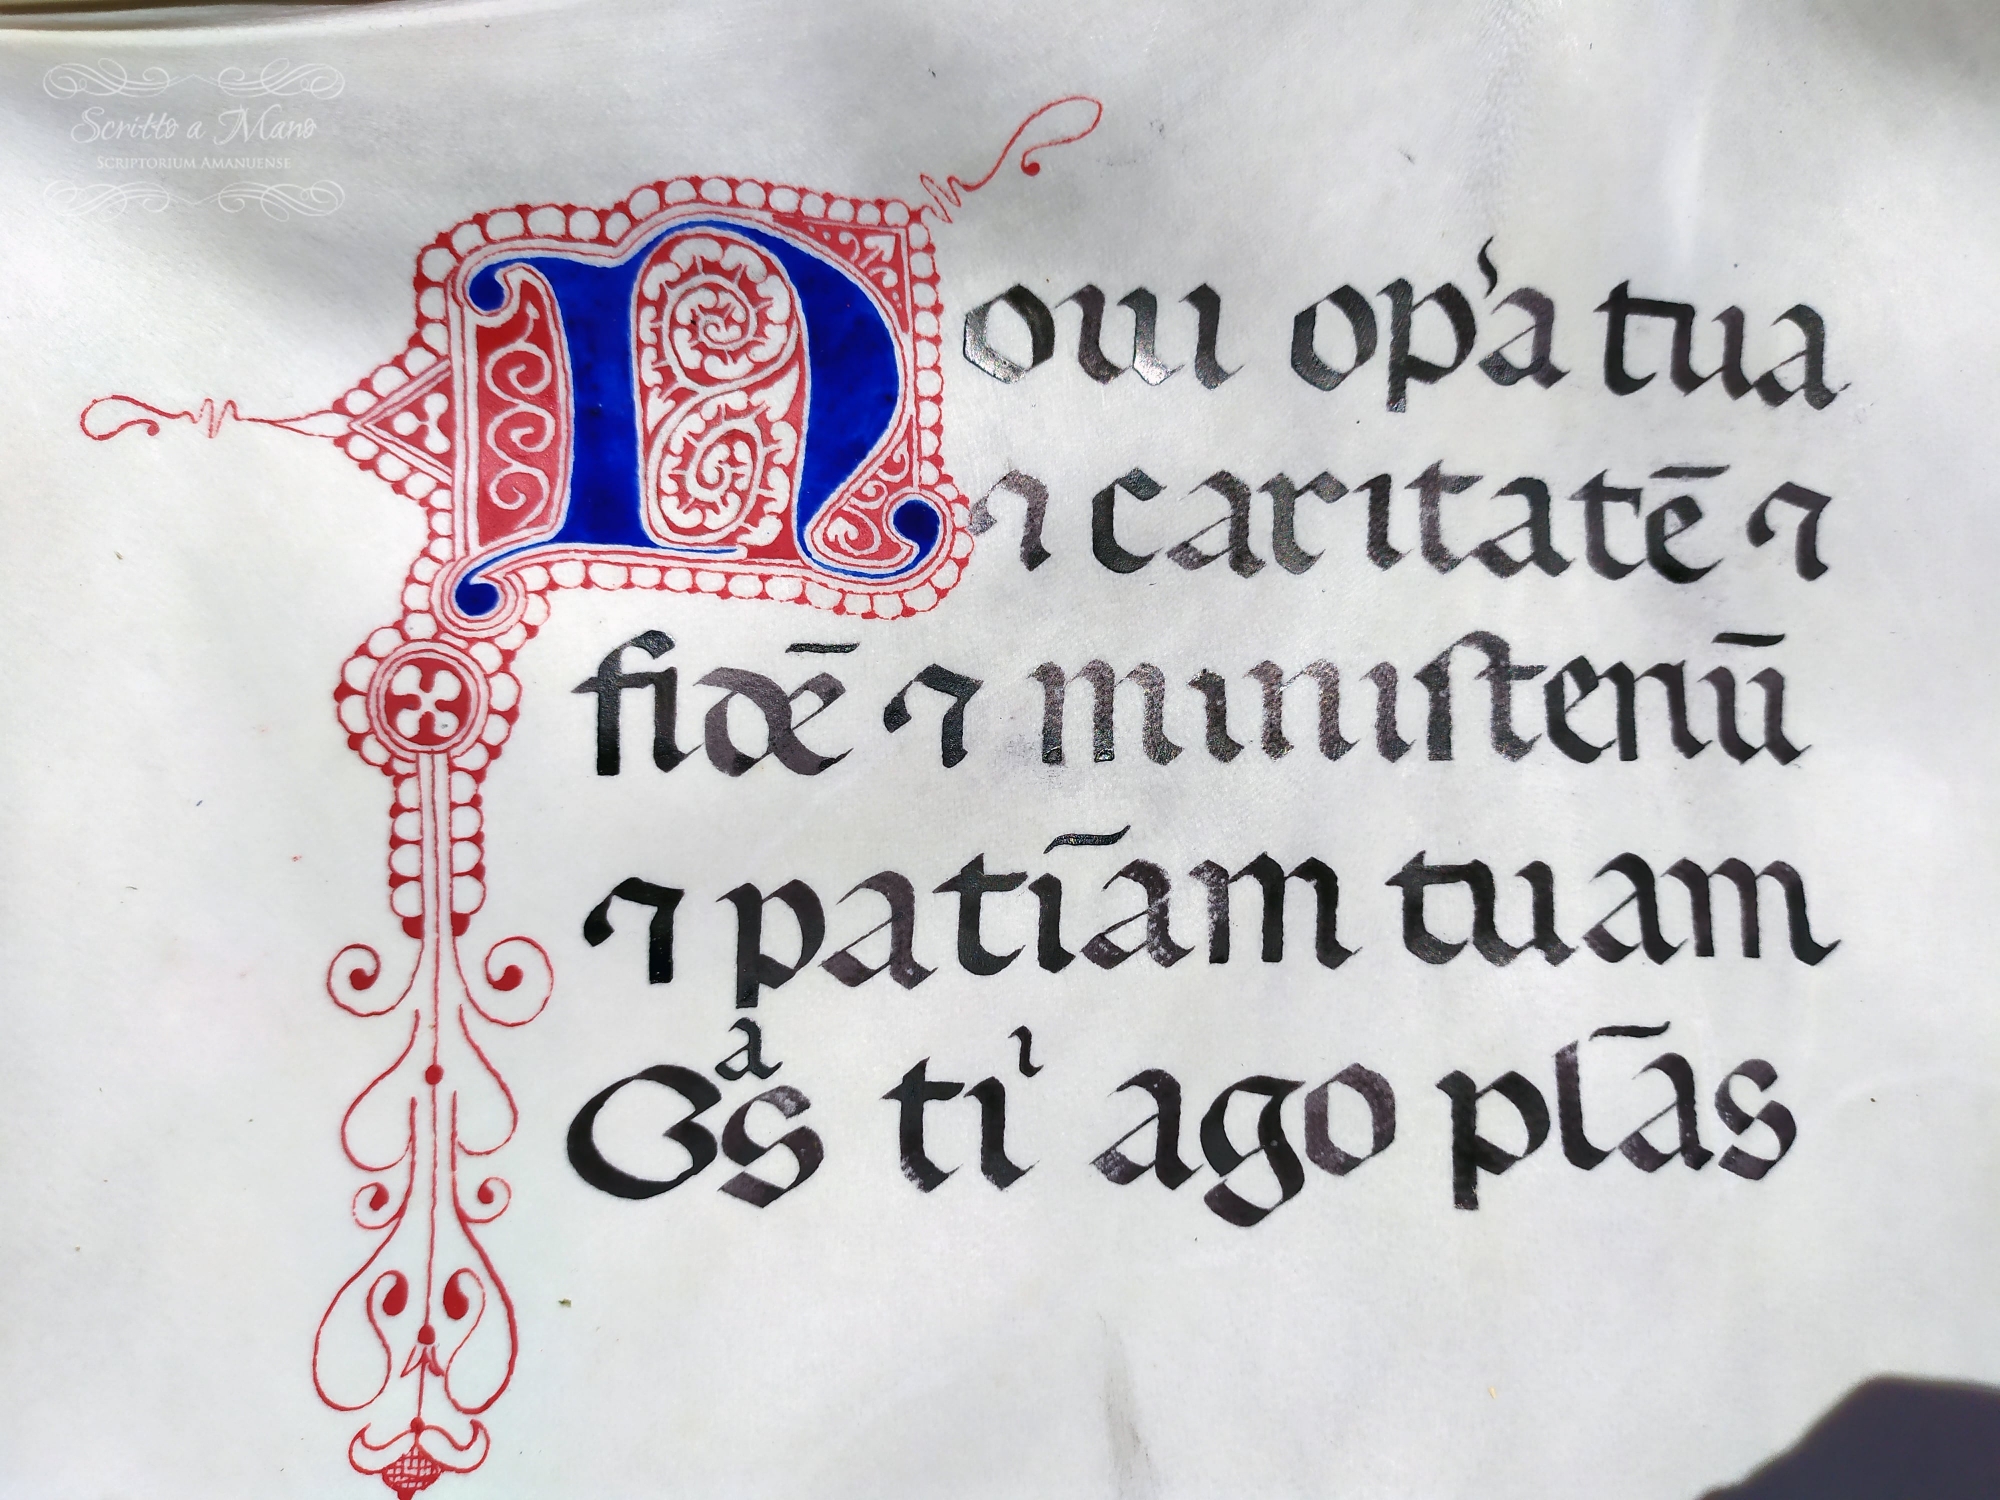 Scritto a Mano
SCRIPTORIUM AMANUENSE
Noui op̓a tua
⁊ caritatē ⁊
fidē ⁊ miniſteriū
⁊ patiā̄m tuam
Gᵃs tⁱ ago plās